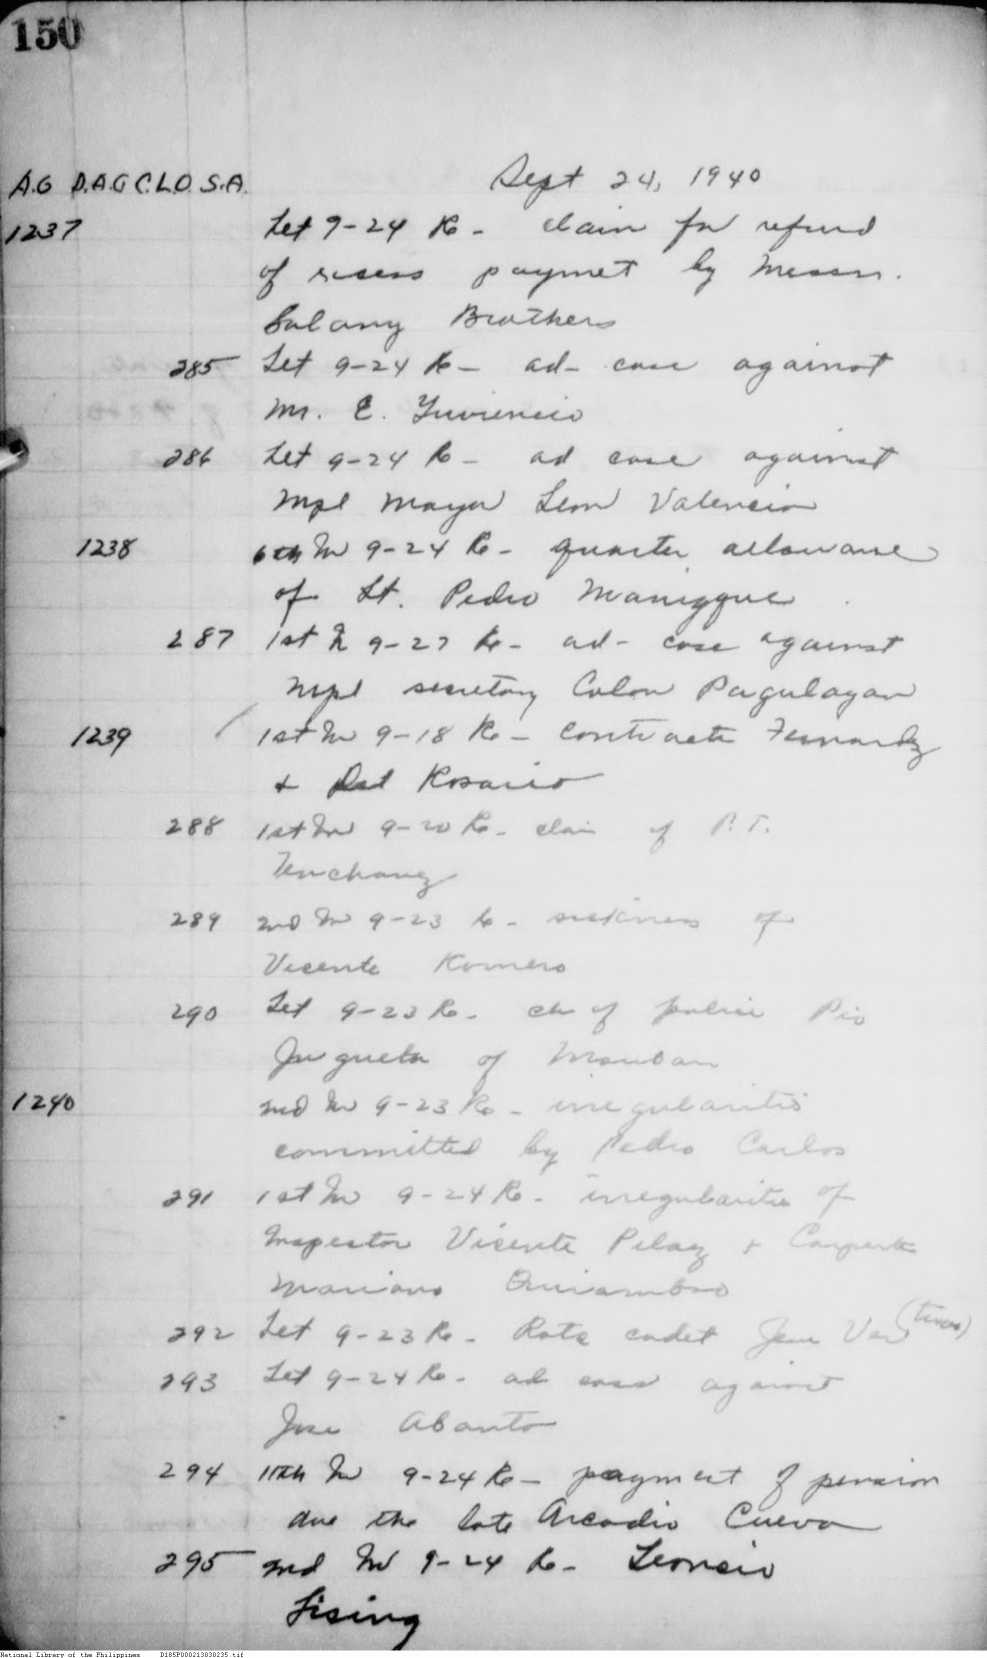 150
Sept 24, 1940
A.G D.A.G C.L.O. S.A.
1237 Let 9-24 Re - claim for refund
of excess paymet by Messrs.
Brothers
285 Let 9-24 Re - ad- case against
Mr. E. Yuviencio
286 Let 9-24 Re - ad case against
Mpl Mayor Leon Valencia
1238 6th In 9-24 Re - quarter allowance
of Lt. Pedro Maniqque
287 1st In 9-27 Re - ad- case against
Mpl secretary Colon Pagulayan
1239 1st In 9-18 Re - contracts Fernandz
& Del Rosario
288 1st In 9-20 Re - clai of P. T.
Tenchavez
289 2nd In 9-23 Re - sickness of
Vicente Romero
290 Let 9-23 Re - ch of police Pio
Jugueta of Mauban
1240 2nd In 9-23 Re - irregularities
committed by Pedro Carlos
291 1st In 9-24 Re - irregularities of
Inspector Vicente Pelaez & Carpenter
Mariano Quiambao
292 Let 9-23 Re - Rotc cadet Jesus
293 Let 9-24 Re - ad case against
Jose Abanto
294 11th In 9-24 Re - payment of pension
due the late Arcadio Cueva
295 2nd In 9-24 Re - Leoncio
Lising
National Library of the Philippines D185P000213030235.tif